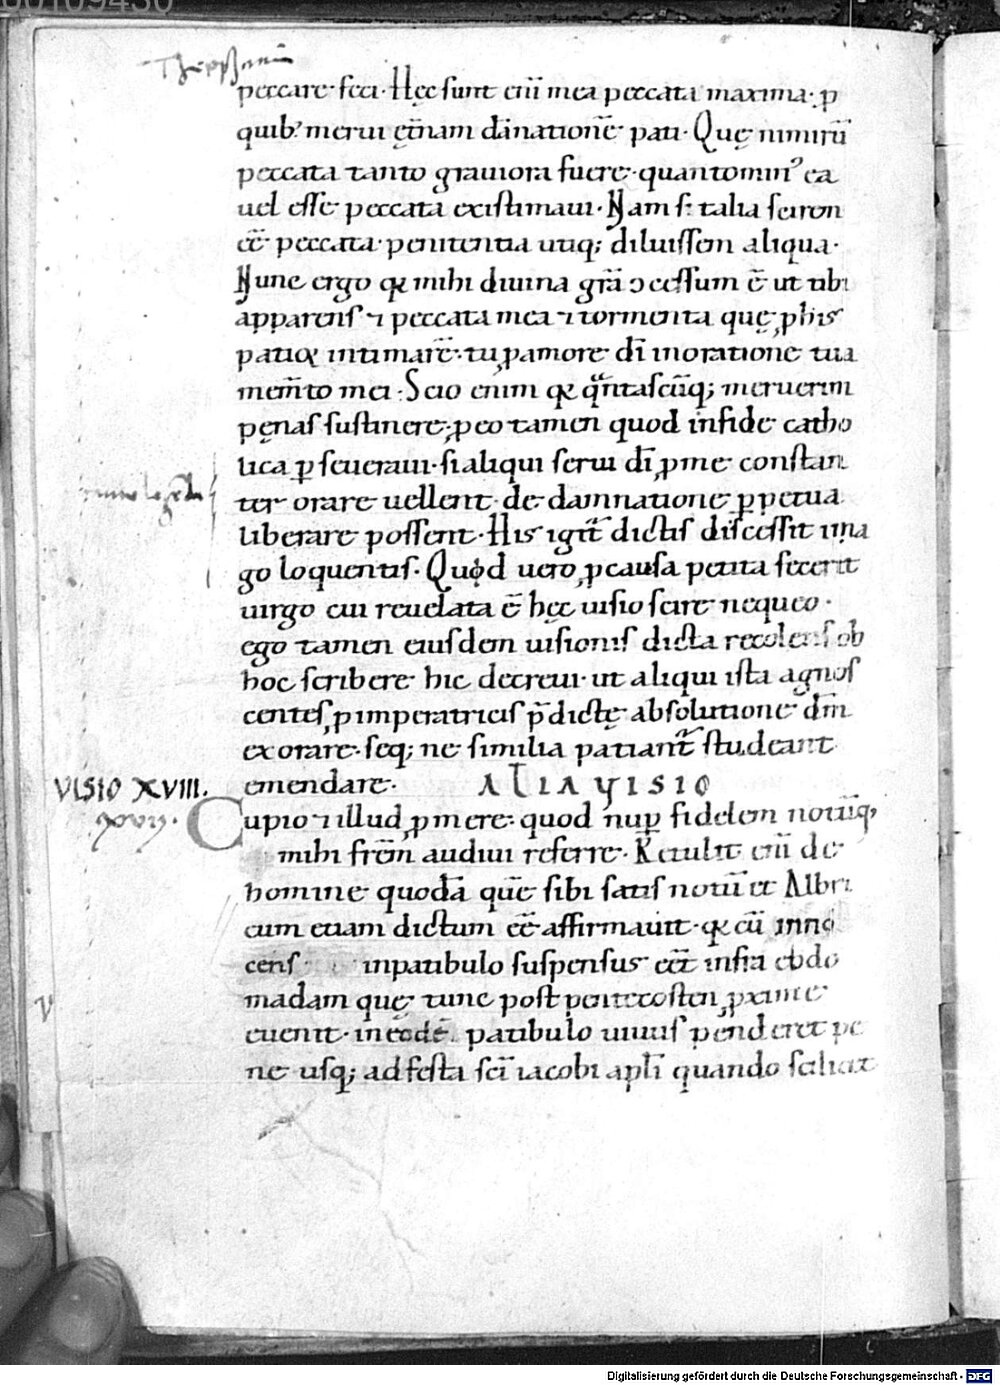 peccare feci. Hęc sunt eni̅ mea peccata maxima. ꝑ
quib; merui ęt̅nam da̅natione̅ pati. Quę nimiru̅
peccata tanto graviora fuere. quantomin᾽ ea
uel esse peccata existimaui. Nam si talia sciren
ee̅ peccata penitentia utiq; diluissem aliqua.
Nunc ergo qđ mihi divina gr̅a ɔcessum e̅ ut tibi
apparens ⁊ peccata mea ⁊ tormenta quę ꝓ his
patior intimare̅. tu ꝓ amore di̅ in oratione tua
mem̅to mei. Scio enim qđ qͣntascu̅q; meruerim
pęnas sustinere, ꝓ eo tamen quod infide catho
lica ꝑseueraui. si aliqui serui di̅ ꝓ me constan
ter orare uellent. de damnatione ꝑpetua
liberare possent. His igit̅ dictis discessit ima
go loquentis. Quod uero ꝓ causa petita fecerit
uirgo cui reuelata e̅ hęc uisio scire nequeo.
ego tamen eiusdem uisionis dicta recolens ob
hoc scribere hic decreui. ut aliqui ista agnos
centes, ꝓ imperatricis p̅dictę absolutione dm̅
exorare. seq; ne similia patiant̅ studeant
emendare. ALIA VISIO
VISIO XVIII.
xvij.
Cupio ⁊ illud ꝓmere. quod nuꝑ fidelem notu̅q;
mihi fr̅em audiui referre. Retulit eni̅ de
homine quoda̅ que̅ sibi satis notu̅ et Albri
cum etiam dictum ee̅ affirmauit. qđ cu̅ inno
cens inpatibulo suspensus eet̅ infra ebdo
madam quę tunc post pentecosten ꝓxime
euenit. in eode̅ patibulo uiuus penderet pe
ne usq; ad festa sc̅i iacobi apl̅i quando scilicet
Digitalisierung gefördert durch die Deutsche Forschungsgemeinschaft - DFG